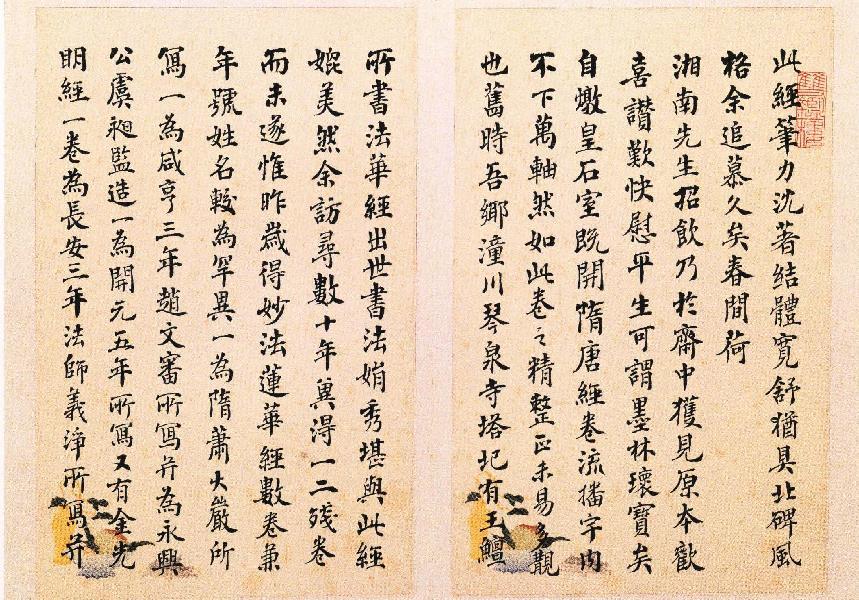 此經筆力沈著結體寬舒猶具北碑風
格余追慕久矣春間荷
湘南先生招飲乃於齋中獲見原本歡
喜讚歎快慰平生可謂墨林瓌寶矣
自燉皇石室既開隋唐經卷流播宇内
不下萬軸然如此卷之精整正未易多覯
也舊時吾鄉潼川琴泉寺塔圮有王鱣
所書法華經出世書法娟秀堪與此經
媲美然余訪尋數十年與得一二殘卷
而未遂惟昨歲得妙法蓮華經數卷兼
年號姓名較為罕異一為隋蕭大嚴所
寫一為咸亨三年趙文審所寫并為永興
公虞昶監造一為開元五年所寫又有金光
明經一卷為長安三年法師義淨所寫并